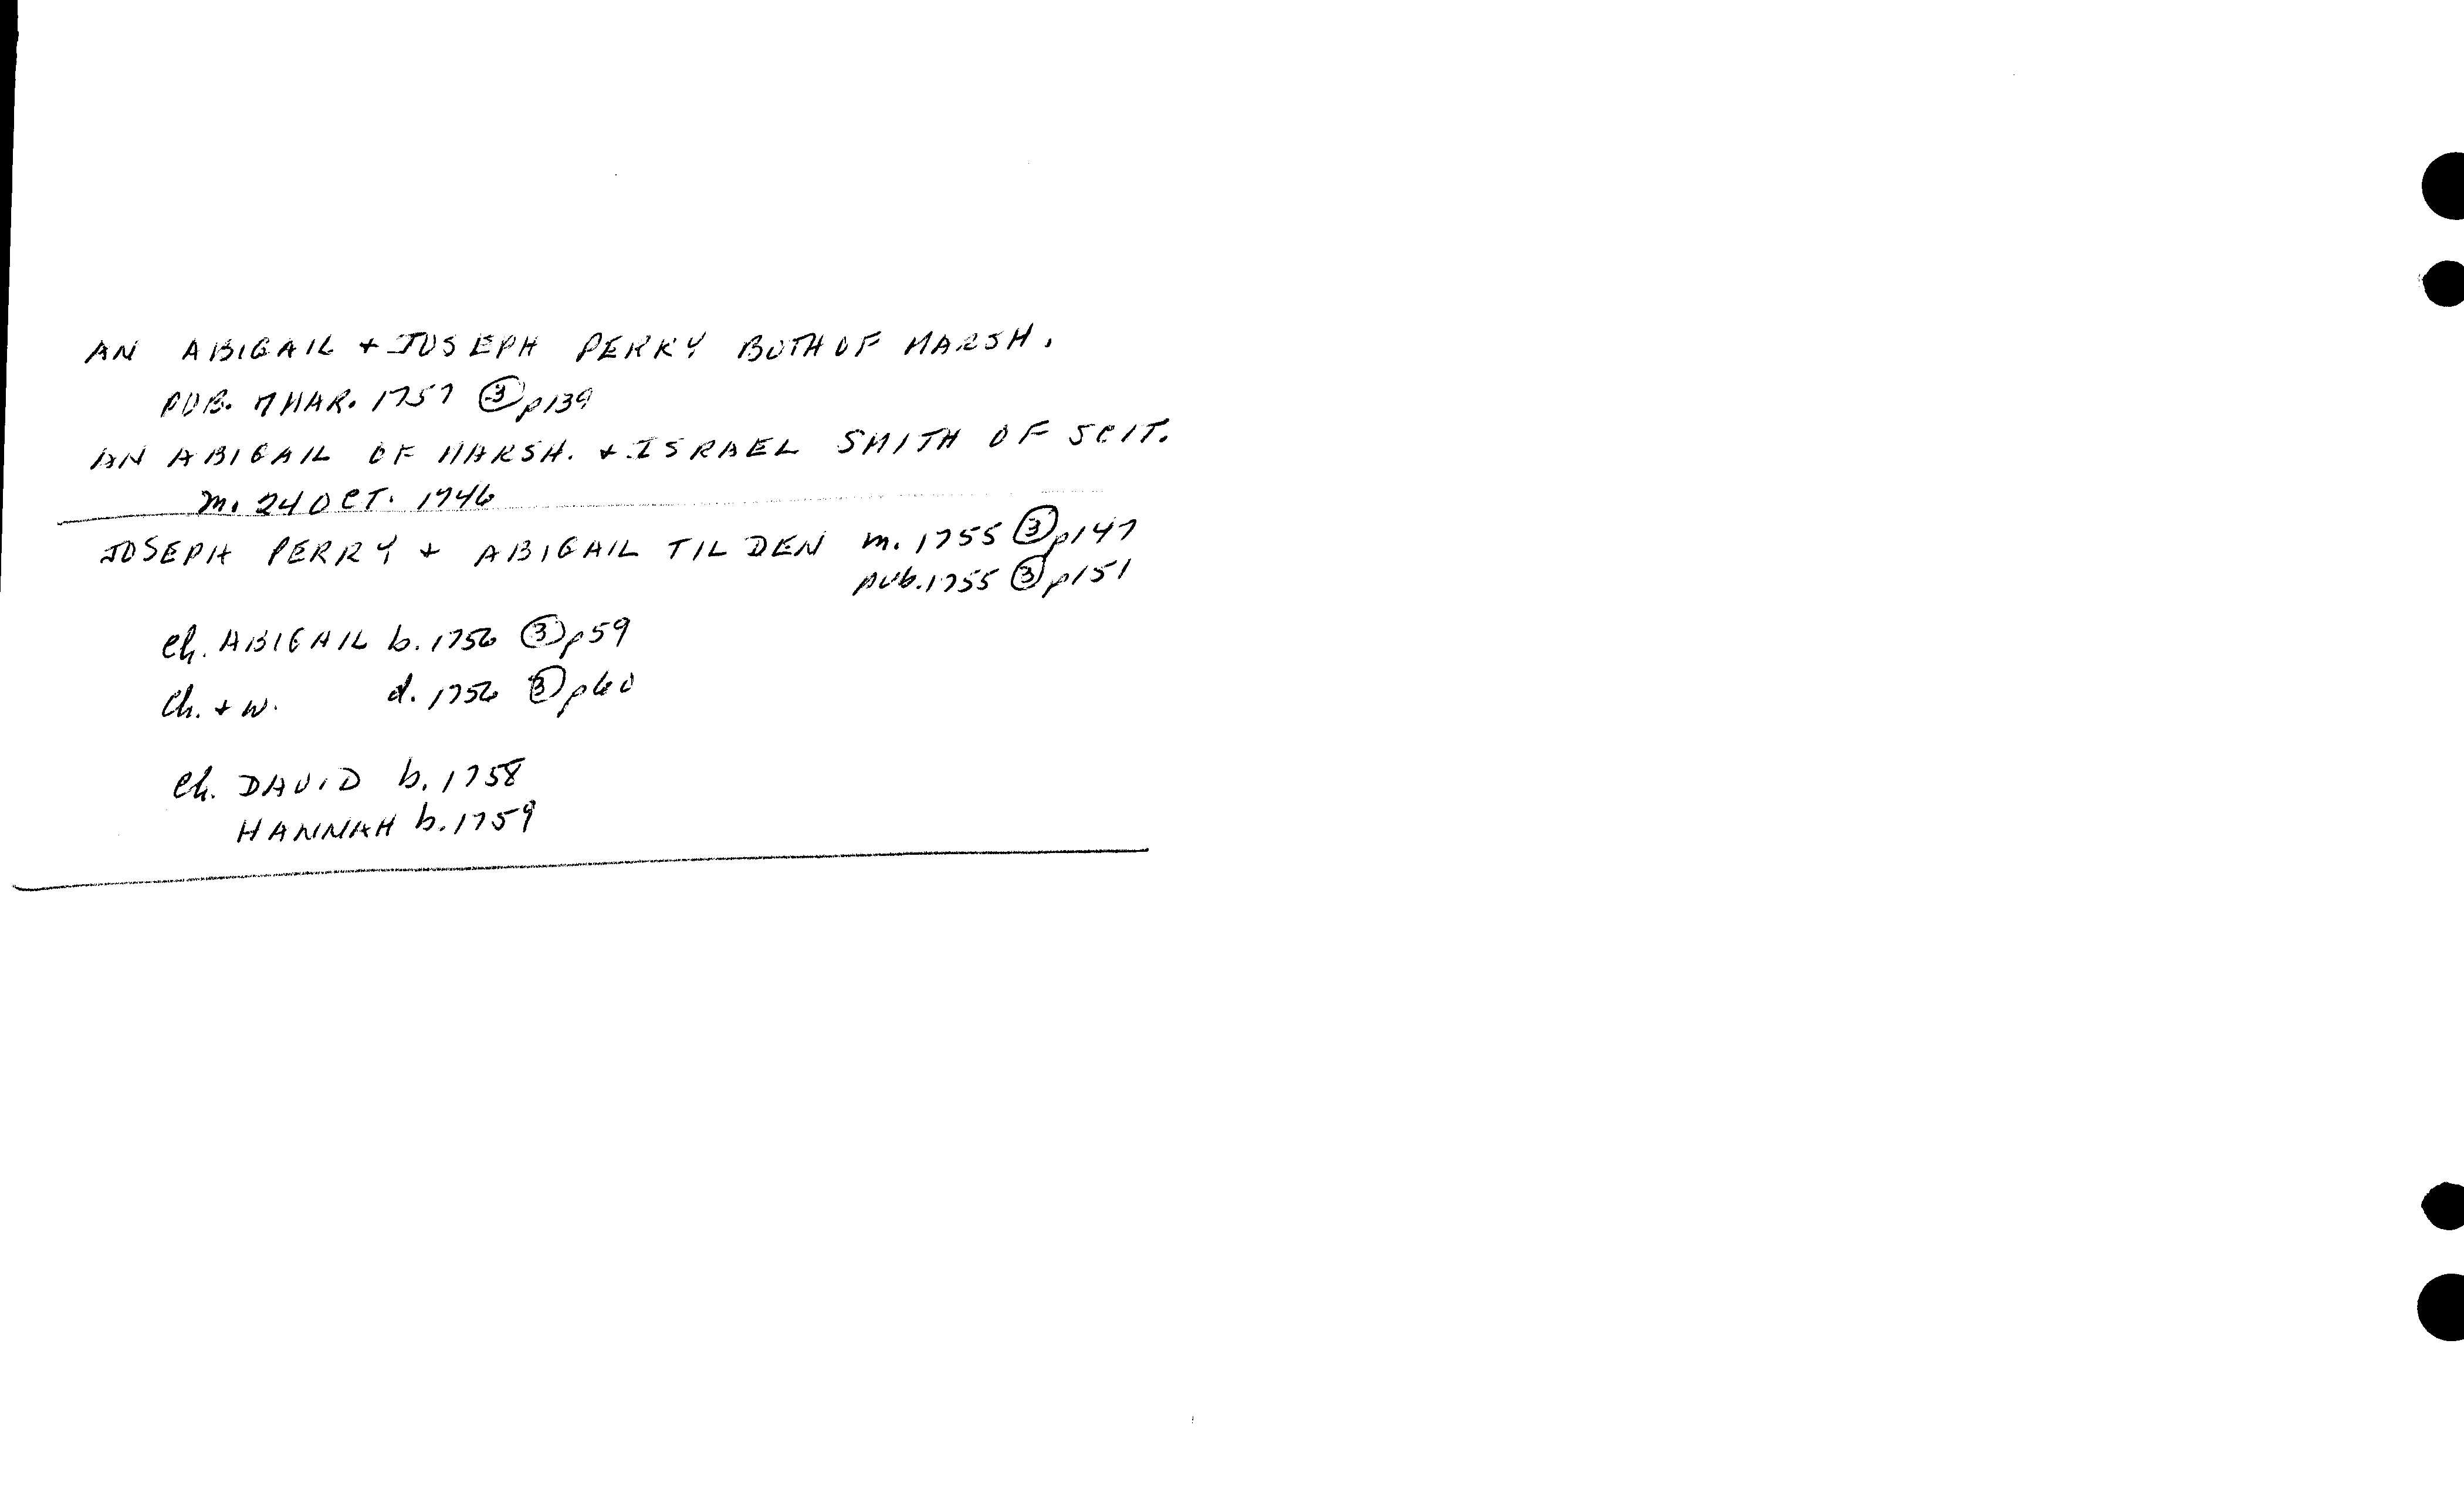 AN ABIGAIL + JOSEPH PERRY BOTH OF MARSH.
PUB. 7 MAR. 1757 ③ p139
AN ABIGAIL OF MARSH. + ISRAEL SMITH OF SCIT.
m. 24 OCT. 1746
JOSEPH PERRY + ABIGAIL TILDEN m. 1755 ③ p147
pub. 1755 ③ p151
ch. ABIGAIL b. 1756 ③ p59
ch. + w. d. 1756 ③ p60
ch. DAVID b. 1758
HANNAH b. 1759